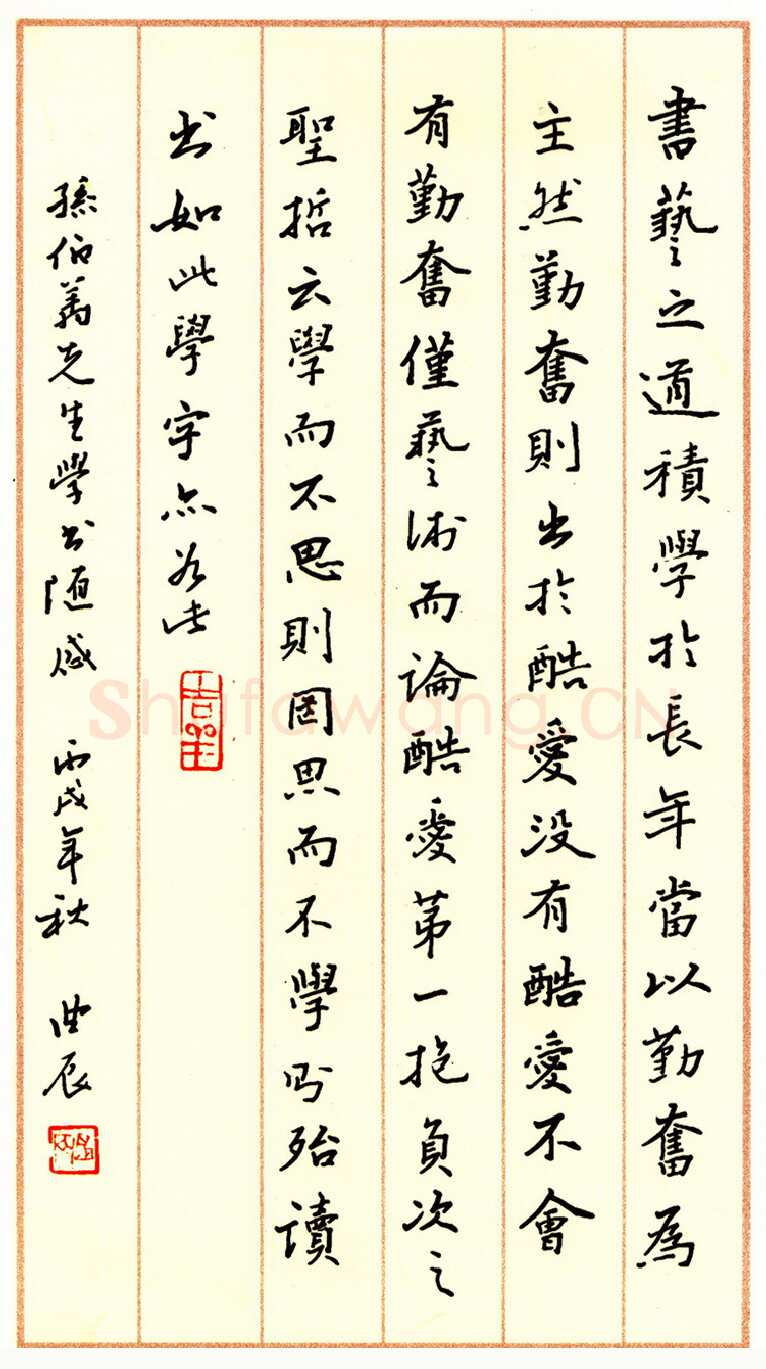 書藝之道積學於長年當以勤奮為
主然勤奮則出於酷愛没有酷愛不會
有勤奮僅藝術而論酷愛第一抱負次之
聖哲云學而不思則罔思而不學則殆讀
书如此學字亦若此
孫伯翥先生學书随感 丙戌年秋 曲辰
Shufawang.CN